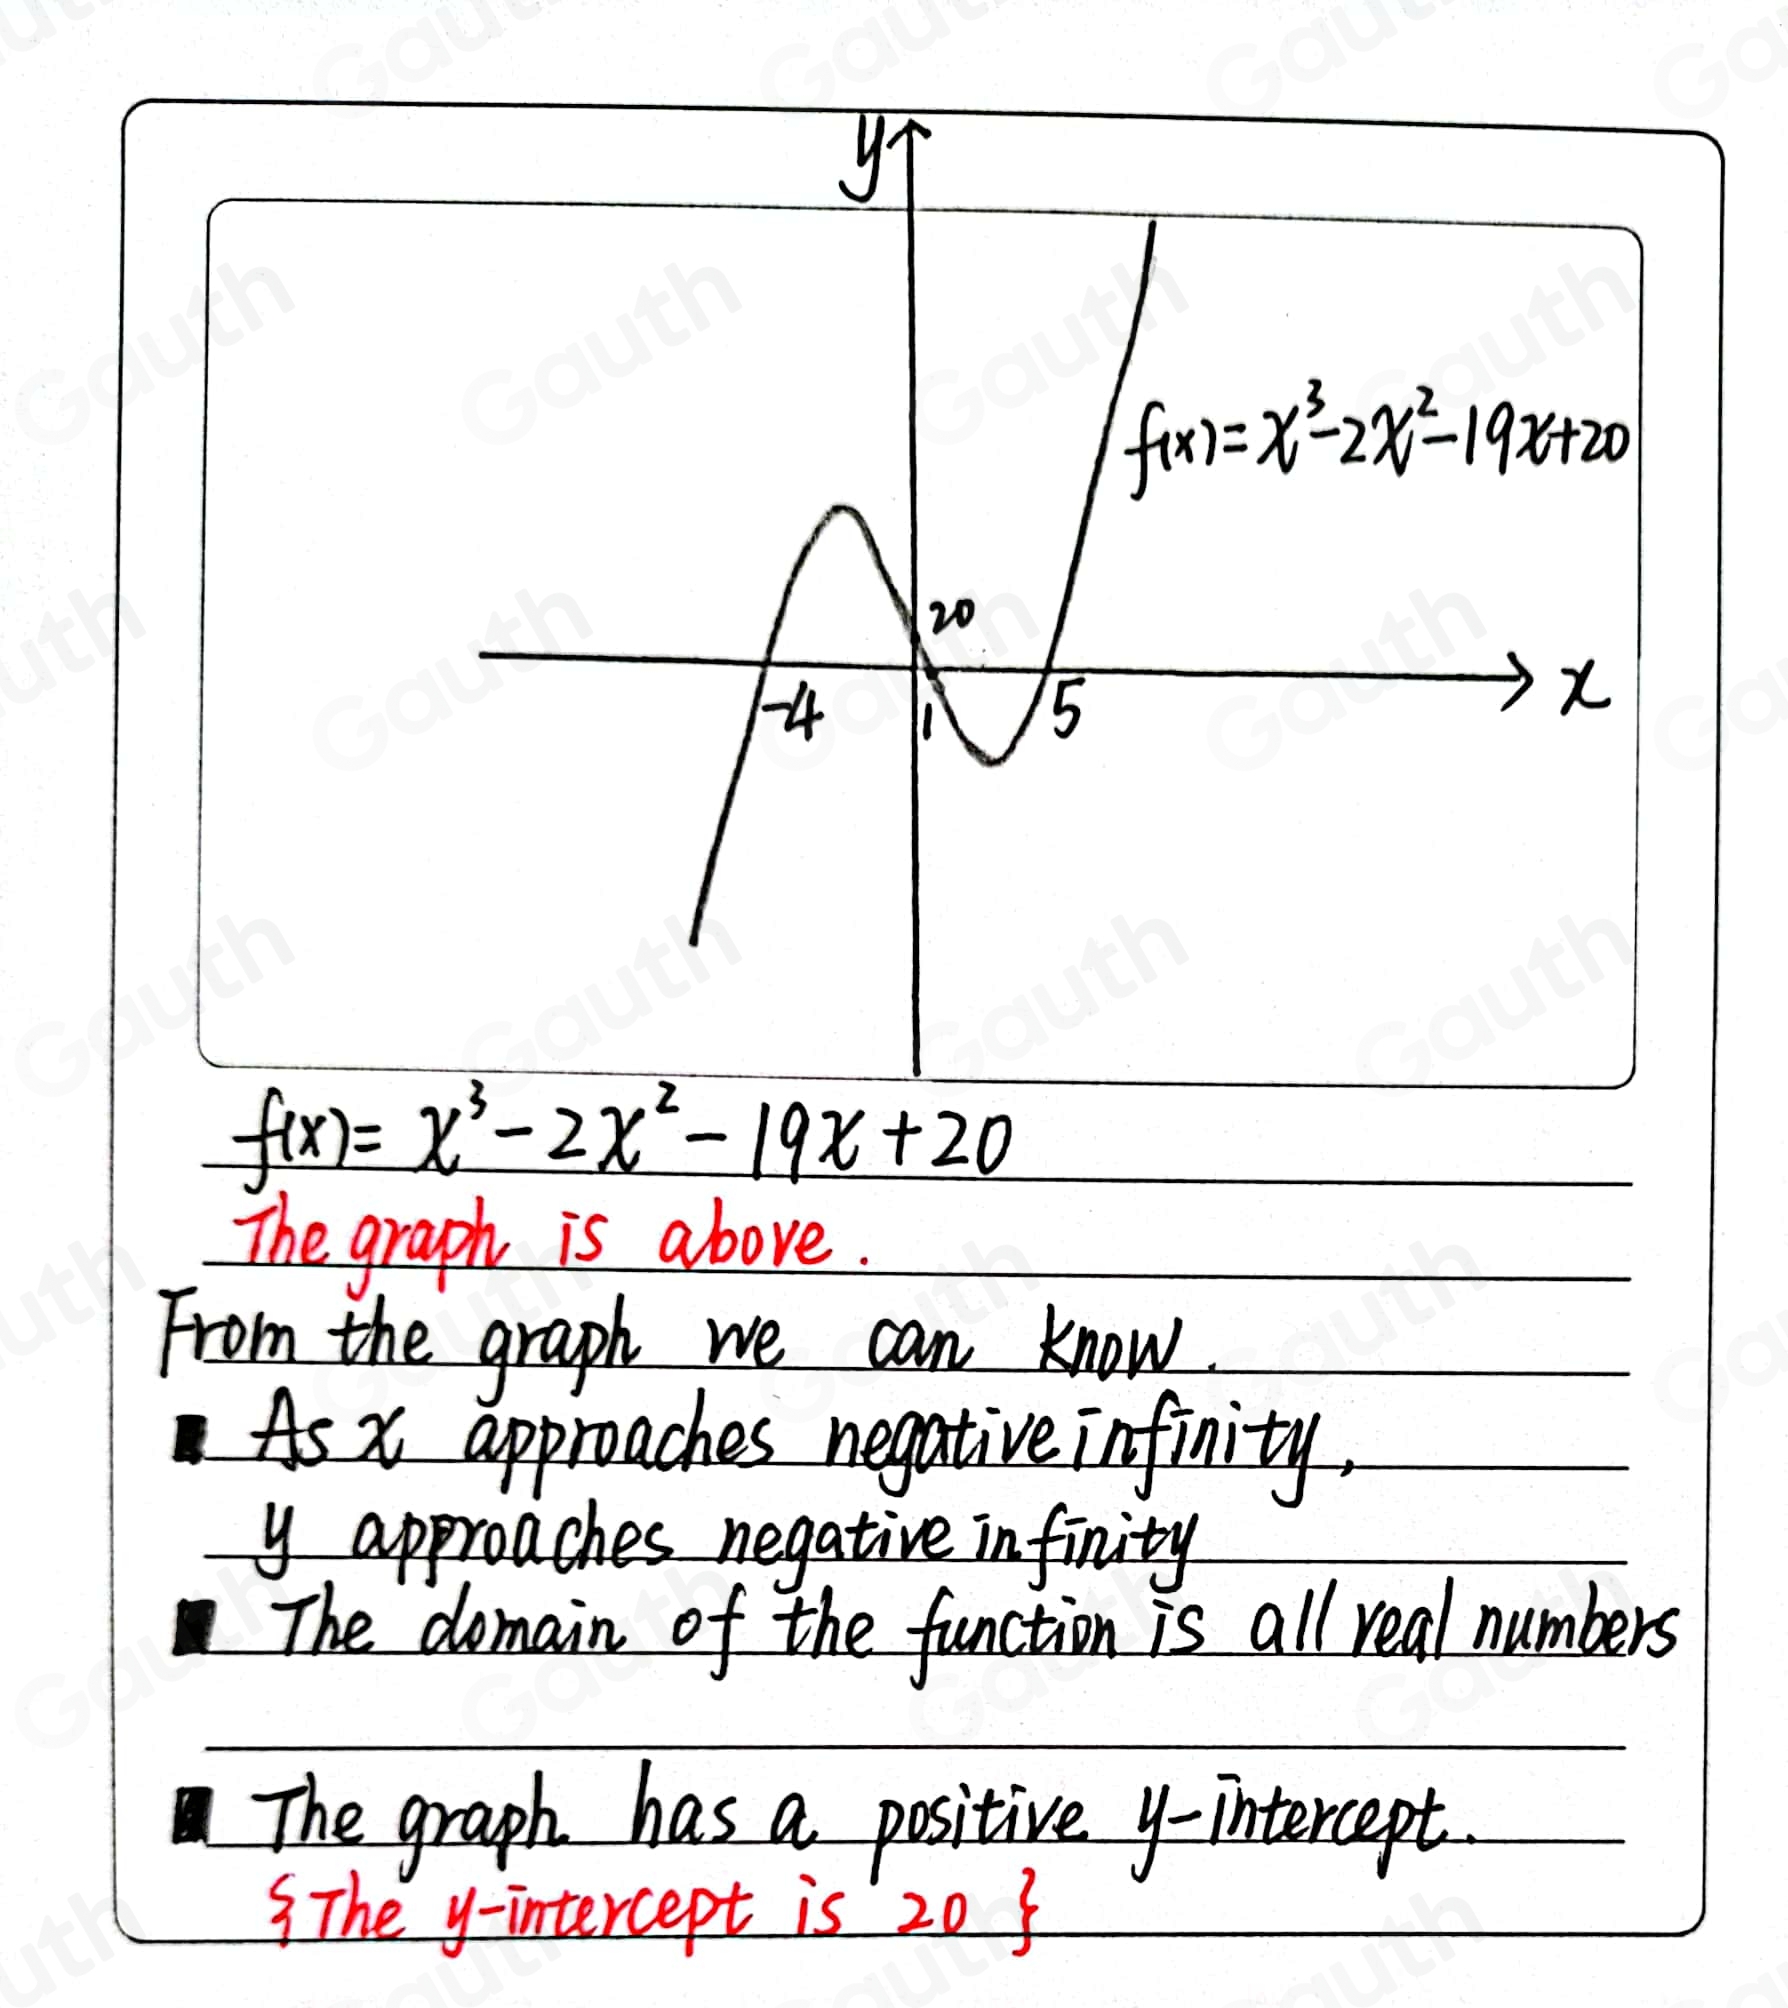 y
f(x)=x³-2x²-19x+20
20
-4
1
5
x
f(x)= x³-2x²-19x+20
The graph is above.
From the graph we can know.
As x approaches negative infinity,
y approaches negative infinity
The domain of the function is all real numbers
The graph has a positive y-intercept.
{The y-intercept is 20}
Gauth